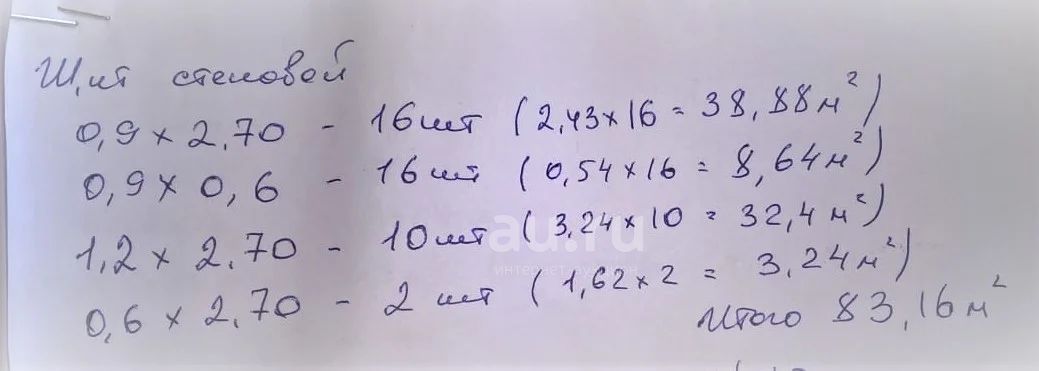 Щит стеновой
0,9 х 2,70 - 16 шт (2,43 х 16 = 38,88 м²)
0,9 х 0,6 - 16 шт (0,54 х 16 = 8,64 м²)
1,2 х 2.70 - 10 шт (3,24 х 10 = 32,4 м²)
0,6 х 2,70 - 2 шт (1,62 х 2 = 3,24 м²)
Итого 83,16 м²
au.ru
интернет-аукцион